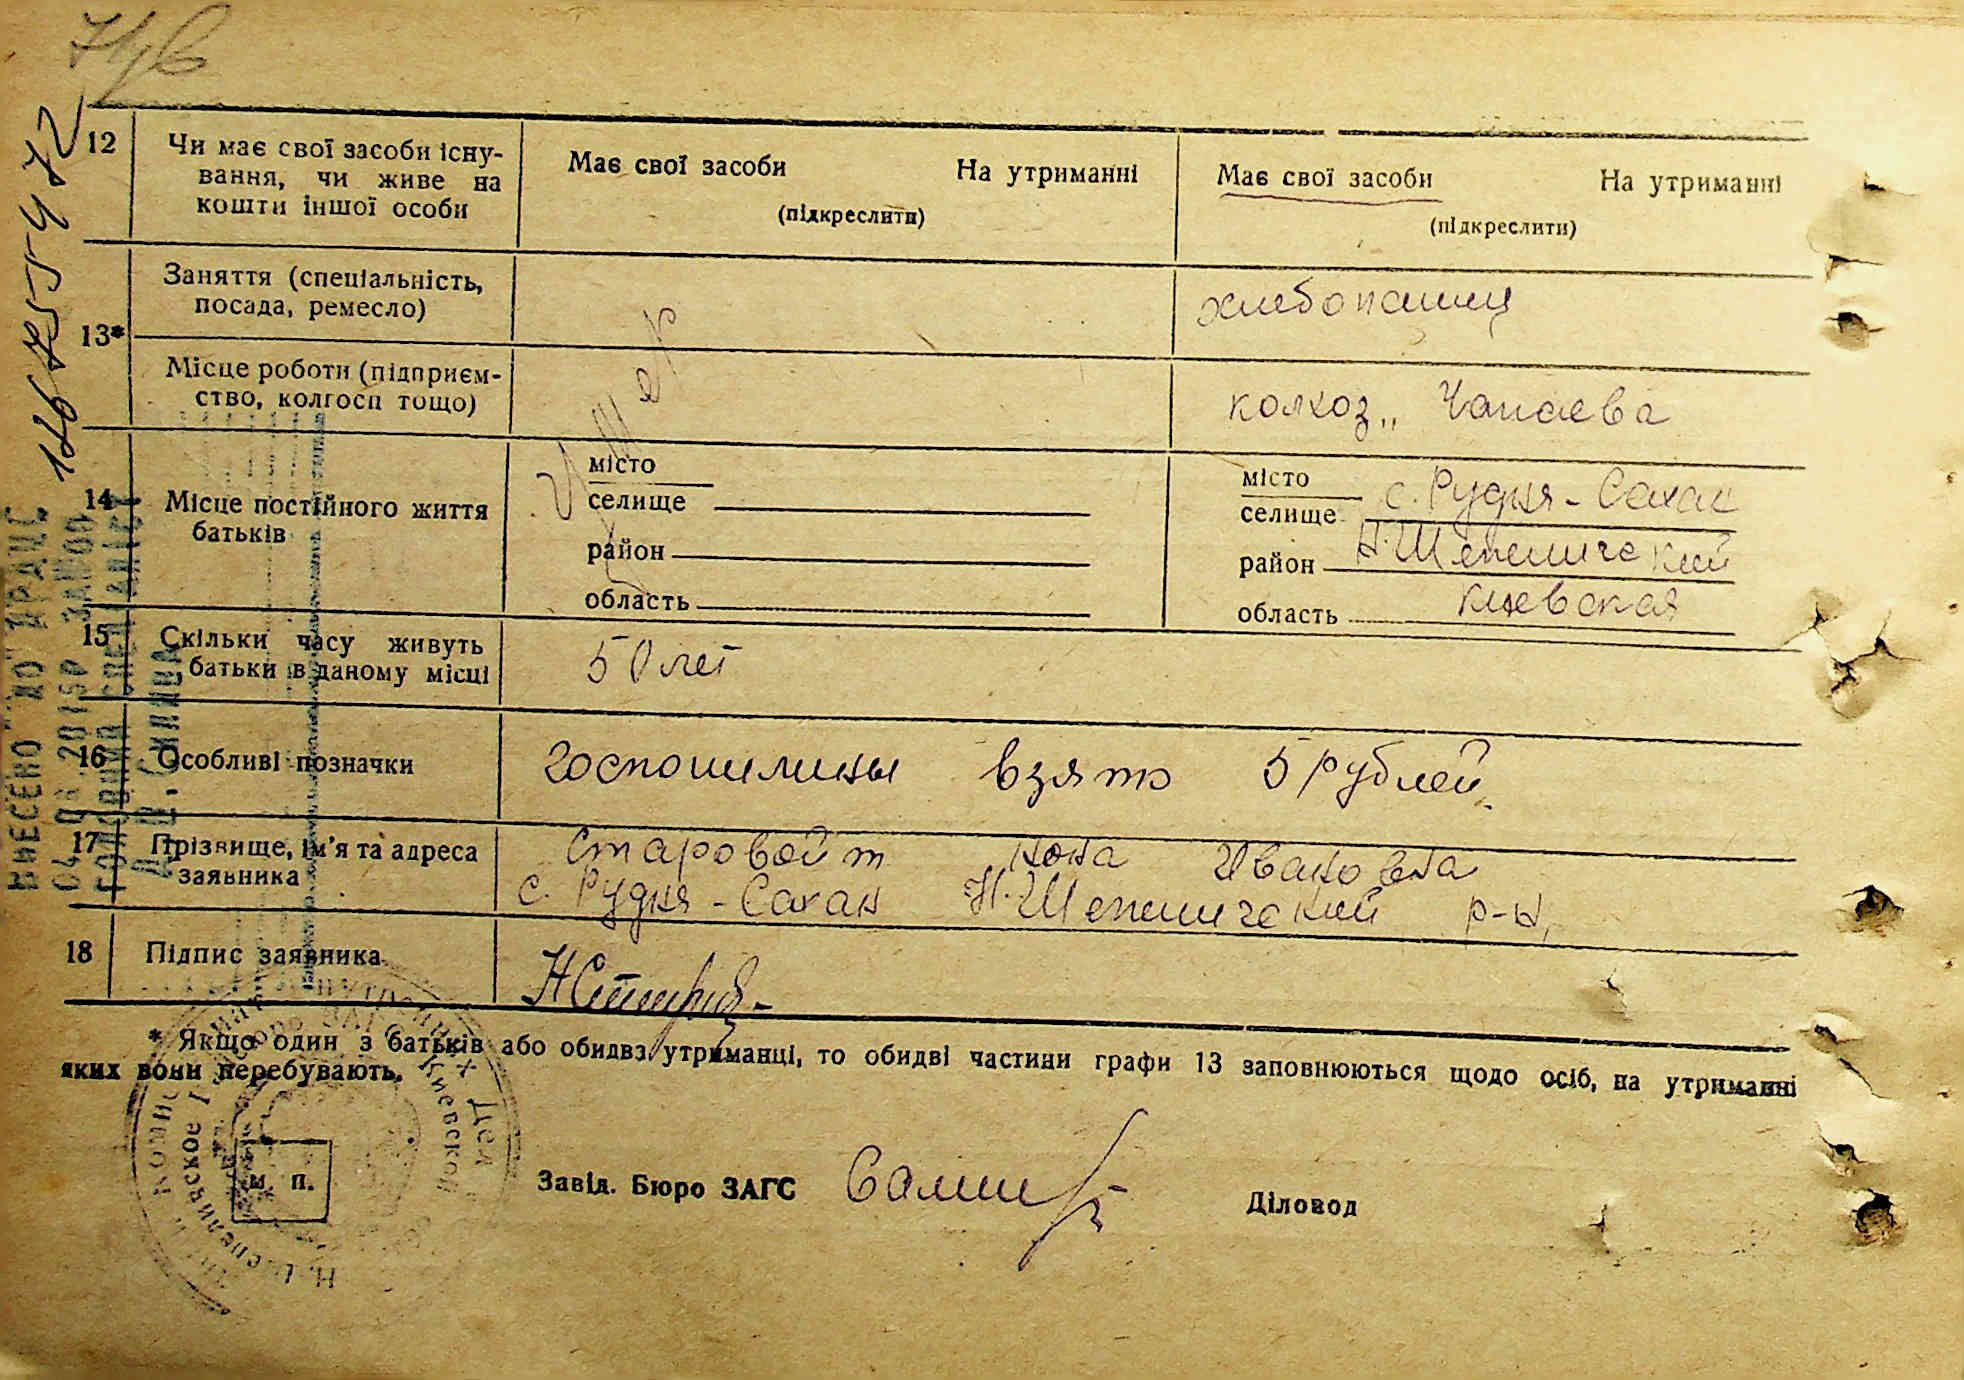 12
Чи має свої засоби існу-
вання, чи живе на
кошти іншої особи
Має свої засоби На утриманні
(підкреслити)
Має свої засоби На утриманні
(підкреслити)
13*
Заняття (спеціальність,
посада, ремесло)
хлебопашец
Місце роботи (підприєм-
ство, колгосп тощо)
колхоз „ Чапаева
14
Місце постійного життя
батьків
умер
місто
селище
район
область
місто
селище с. Рудня-Сахан
район Н.Шепеличский
область Киевская
15
Скільки часу живуть
батьки в даному місці
50 лет
16
Особливі позначки
госпошлины взято 5 рублей
17
Прізвище, ім'я та адреса
заявника
Старовойт Ивановна
с. Рудня-Сахан Н.Шепеличский р-н,
18
Підпис заявника
* Якщо один з батьків або обидва утриманці, то обидві частини графи 13 заповнюються щодо осіб, на утриманні
яких вони перебувають.
М. П.
Завід. Бюро ЗАГС
Діловод
ВНЕСЕНО ДО ДРАЦС